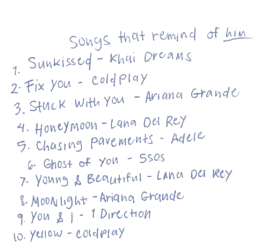 Songs that remind of him
1. Sunkissed - Khai Dreams
2. Fix You - Coldplay
3. Stuck With You - Ariana Grande
4. Honeymoon - Lana Del Rey
5. Chasing Pavements - Adele
6. Ghost of you - 5SOS
7. Young & Beautiful - Lana Del Rey
8. Moonlight - Ariana Grande
9. You & I - 1 Direction
10. Yellow - Coldplay